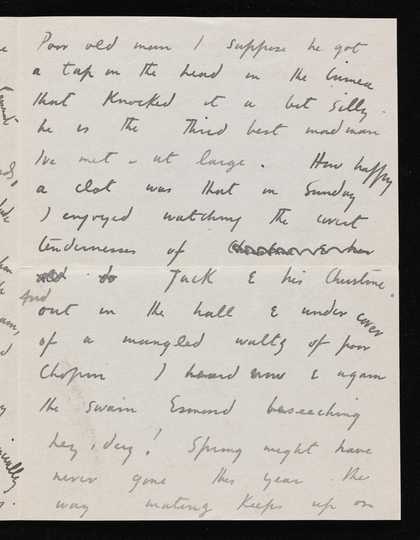 Poor old man I suppose he got
a tap on the head in the Crimea
that knocked it a bit silly.
he is the third best madman
I've met - at large. How happy
a clot was that on Sunday
I enjoyed watching the covert
tendernesses of
to Jack & his Christine.
and
out in the hall & under cover
of a mangled waltz of poor
Chopin I heard now & again
the swain Esmond beseeching
hey, day! Spring might have
never gone this year the
way mating keeps up on